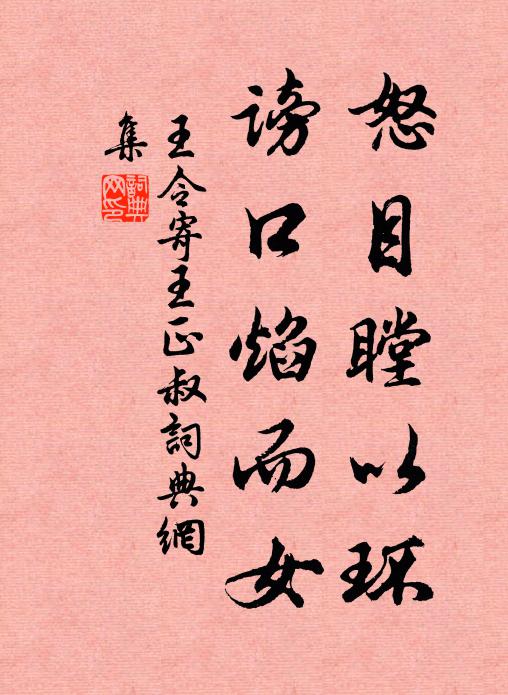 怒目瞠以环
谤口焰而女
王令寄王正叔詞典網
集
詞典
网印